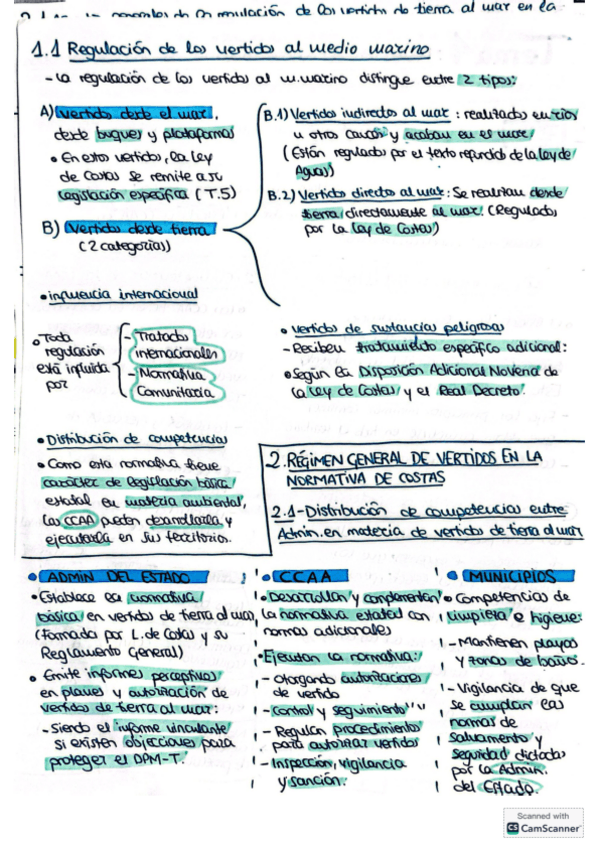 de la regulación de los vertidos de tierra al mar en la
1.1 Regulación de los vertidos al medio marino
- La regulación de los vertidos al m. marino distingue entre 2 tipos:
A) Vertidos desde el mar,
desde buques y plataformas
• En estos vertidos, la Ley
de Costas se remite a su
legislación específica (T.5)
B) Vertidos desde tierra
(2 categorías)
B.1) Vertidos indirectos al mar: realizados en ríos
u otros cauces y acaban en el mar
(Están regulados por el texto refundido de la Ley de
Aguas)
B.2) Vertidos directos al mar: Se realizan desde
tierra directamente al mar. (Regulados
por la Ley de Costas)
• influencia internacional
• Toda
regulación
está influida
por
- Tratados
internacionales
- Normativa
Comunitaria
• Vertidos de sustancias peligrosas
- Reciben tratamiento específico adicional:
• Según la Disposición Adicional Novena de
la Ley de Costas y el Real Decreto.
• Distribución de competencias
• Como esta normativa tiene
carácter de legislación básica
estatal en materia ambiental,
las CCAA pueden desarrollarla y
ejecutarla en sus territorios.
2. RÉGIMEN GENERAL DE VERTIDOS EN LA
NORMATIVA DE COSTAS
2.1- Distribución de competencias entre
Admin. en materia de vertido de tierra al mar
• ADMIN DEL ESTADO
• Establece la normativa
básica en vertidos de tierra al mar,
(formada por L. de Costas y su
Reglamento General)
• Emite informes preceptivos
en planes y autorización de
vertidos de tierra al mar:
- Siendo el informe vinculante
si existen objecciones para
proteger el DPM-T.
• CCAA
• Desarrollan y complementan
la normativa estatal con
normas adicionales
• Ejecutan la normativa:
- Otorgando autorizaciones
de vertido
- Control y seguimiento " "
- Regulan procedimiento
para autorizar vertidos
- Inspección, vigilancia
y sanción.
• MUNICIPIOS
• Competencias de
limpieza e higiene:
- Mantienen playas
y zonas de baño.
- Vigilancia de que
se cumplan las
normas de
salvamento y
seguridad dictadas
por la Admin.
del Estado.
Scanned with
CS CamScanner